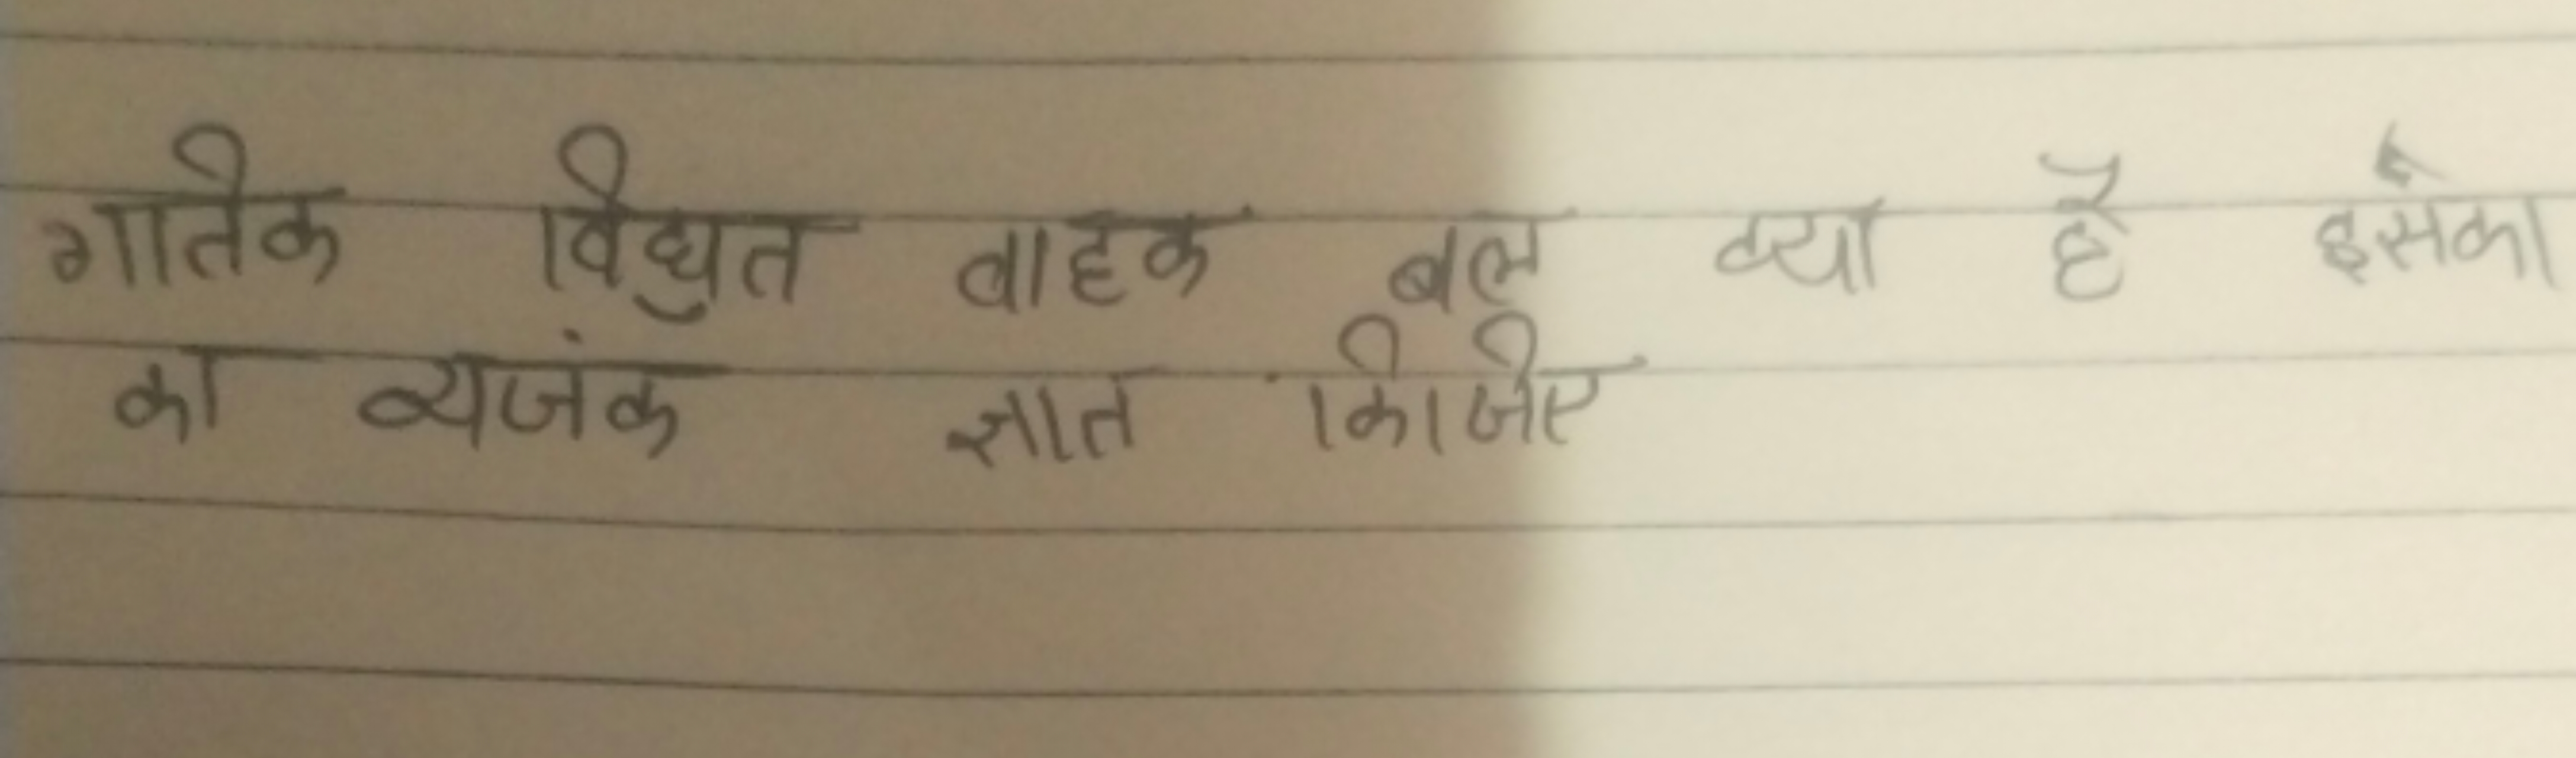 गतिक विद्युत वाहक बल क्या है इसका
का व्यजंक ज्ञात किजिए